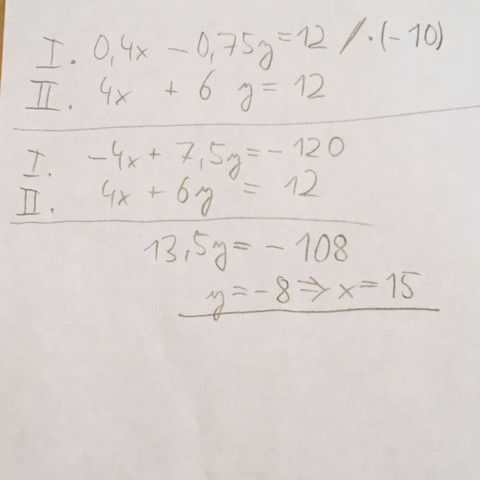 I. 0,4x - 0,75y = 12 / · (-10)
II. 4x + 6 y = 12
I. -4x + 7,5y = -120
II. 4x + 6y = 12
13,5y = - 108
y = -8 ⇒ x = 15